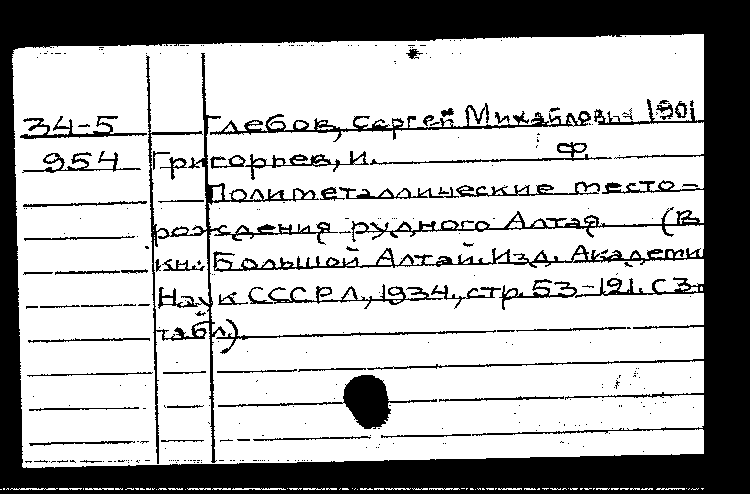 34-5 Глебов, Сергей Михайлович 1901
954 Григорьев, И. Ф.
Полиметаллические место-
рождения рудного Алтая. (В
кн.: Большой Алтай. Изд. Академии
Наук СССР Л., 1934, стр. 53-121. С 3-
табл).